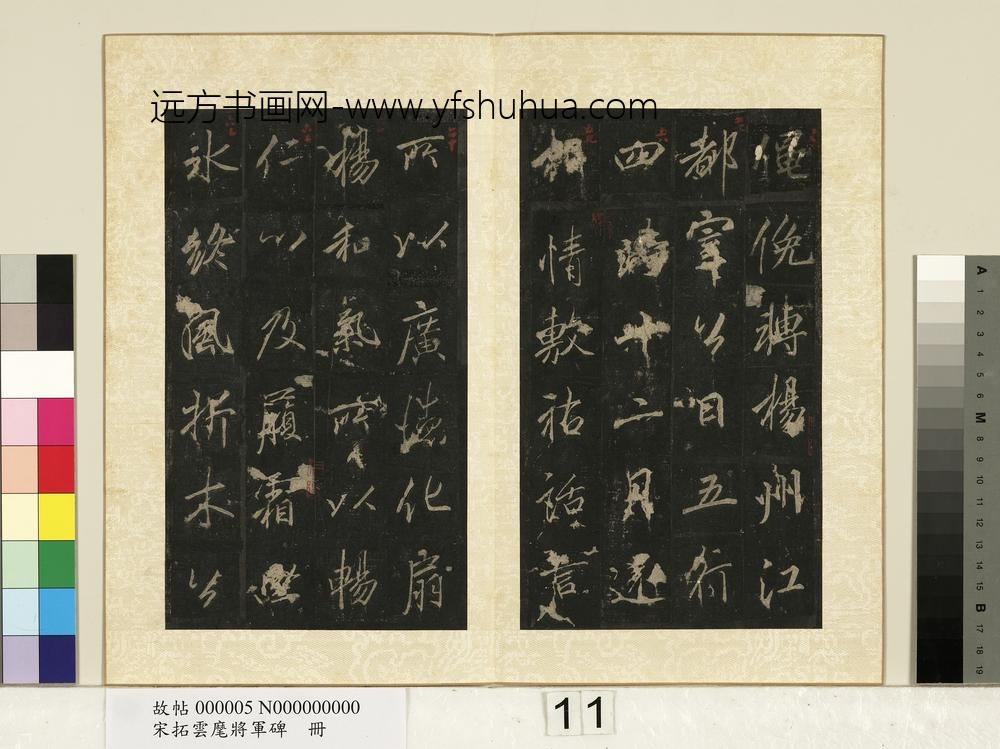 远方书画网-www.yfshuhua.com
僶俛轉楊州江
都宰公曰五行
四時十二月還
相情敷祐話言
所以廣化扇
楊和氣所以暢
仁以及履霜堅
氷終風折木公
故帖 000005 N000000000
宋拓雲麾將軍碑 冊
11
A 1 2 3 4 5 6 M 8 9 10 11 12 13 14 15 B 17 18 19